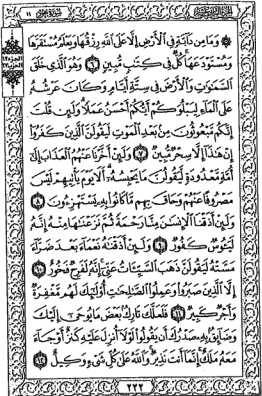 ۞ وَمَا مِن دَآبَّةٍ فِي ٱلْأَرْضِ إِلَّا عَلَى ٱللَّهِ رِزْقُهَا وَيَعْلَمُ مُسْتَقَرَّهَا
وَمُسْتَوْدَعَهَا كُلٌّ فِي كِتَٰبٍ مُّبِينٍ ٦ وَهُوَ ٱلَّذِي خَلَقَ
ٱلسَّمَٰوَٰتِ وَٱلْأَرْضَ فِي سِتَّةِ أَيَّامٍ وَكَانَ عَرْشُهُۥ
عَلَى ٱلْمَآءِ لِيَبْلُوَكُمْ أَيُّكُمْ أَحْسَنُ عَمَلًا وَلَئِن قُلْتَ
إِنَّكُم مَّبْعُوثُونَ مِنۢ بَعْدِ ٱلْمَوْتِ لَيَقُولَنَّ ٱلَّذِينَ كَفَرُوٓا۟
إِنْ هَٰذَآ إِلَّا سِحْرٌ مُّبِينٌ ٧ وَلَئِنْ أَخَّرْنَا عَنْهُمُ ٱلْعَذَابَ إِلَىٰٓ
أُمَّةٍ مَّعْدُودَةٍ لَّيَقُولُنَّ مَا يَحْبِسُهُۥٓ أَلَا يَوْمَ يَأْتِيهِمْ لَيْسَ
مَصْرُوفًا عَنْهُمْ وَحَاقَ بِهِم مَّا كَانُوا۟ بِهِۦ يَسْتَهْزِءُونَ ٨
وَلَئِنْ أَذَقْنَا ٱلْإِنسَٰنَ مِنَّا رَحْمَةً ثُمَّ نَزَعْنَٰهَا مِنْهُ إِنَّهُۥ
لَيَـُٔوسٌ كَفُورٌ ٩ وَلَئِنْ أَذَقْنَٰهُ نَعْمَآءَ بَعْدَ ضَرَّآءَ
مَسَّتْهُ لَيَقُولَنَّ ذَهَبَ ٱلسَّيِّـَٔاتُ عَنِّيٓ إِنَّهُۥ لَفَرِحٌ فَخُورٌ ١٠
إِلَّا ٱلَّذِينَ صَبَرُوا۟ وَعَمِلُوا۟ ٱلصَّٰلِحَٰتِ أُو۟لَٰٓئِكَ لَهُم مَّغْفِرَةٌ
وَأَجْرٌ كَبِيرٌ ١١ فَلَعَلَّكَ تَارِكٌۢ بَعْضَ مَا يُوحَىٰٓ إِلَيْكَ
وَضَآئِقٌۢ بِهِۦ صَدْرُكَ أَن يَقُولُوا۟ لَوْلَآ أُنزِلَ عَلَيْهِ كَنزٌ أَوْ جَآءَ
مَعَهُۥ مَلَكٌ إِنَّمَآ أَنتَ نَذِيرٌ وَٱللَّهُ عَلَىٰ كُلِّ شَيْءٍ وَكِيلٌ ١٢
٢٢٢